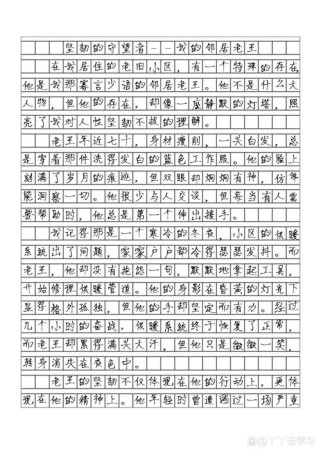 坚韧的守望者--我的邻居老王
在我居住的老旧小区，有一个特殊的存在，
他是我那寡言少语的邻居老王。他不是什么大
人物，但他的存在，却像一座静默的灯塔，照
亮了我对人性坚韧不拔的理解。
老王年近七十，身材瘦削，一头白发，总
是穿着那件洗得发白的蓝色工作服。他的脸上
刻满了岁月的痕迹，但双眼却炯炯有神，仿佛
能洞察一切。他很少与人交谈，但每当有人需
要帮助时，他总是第一个伸出援手。
我记得那是一个寒冷的冬夜，小区的供暖
系统出了问题，家家户户都冷得瑟瑟发抖。而
老王，他却没有抱怨一句，默默地拿起工具，
开始修理供暖管道。他的身影在昏黄的灯光下
显得格外孤独，但他的手却坚定而有力。经过
几个小时的奋战，供暖系统终于恢复了正常，
而老王却累得满头大汗，但他只是微微一笑，
转身消失在夜色中。
老王的坚韧不仅体现在他的行动上，更体
现在他的精神上。他年轻时曾遭遇过一场严重